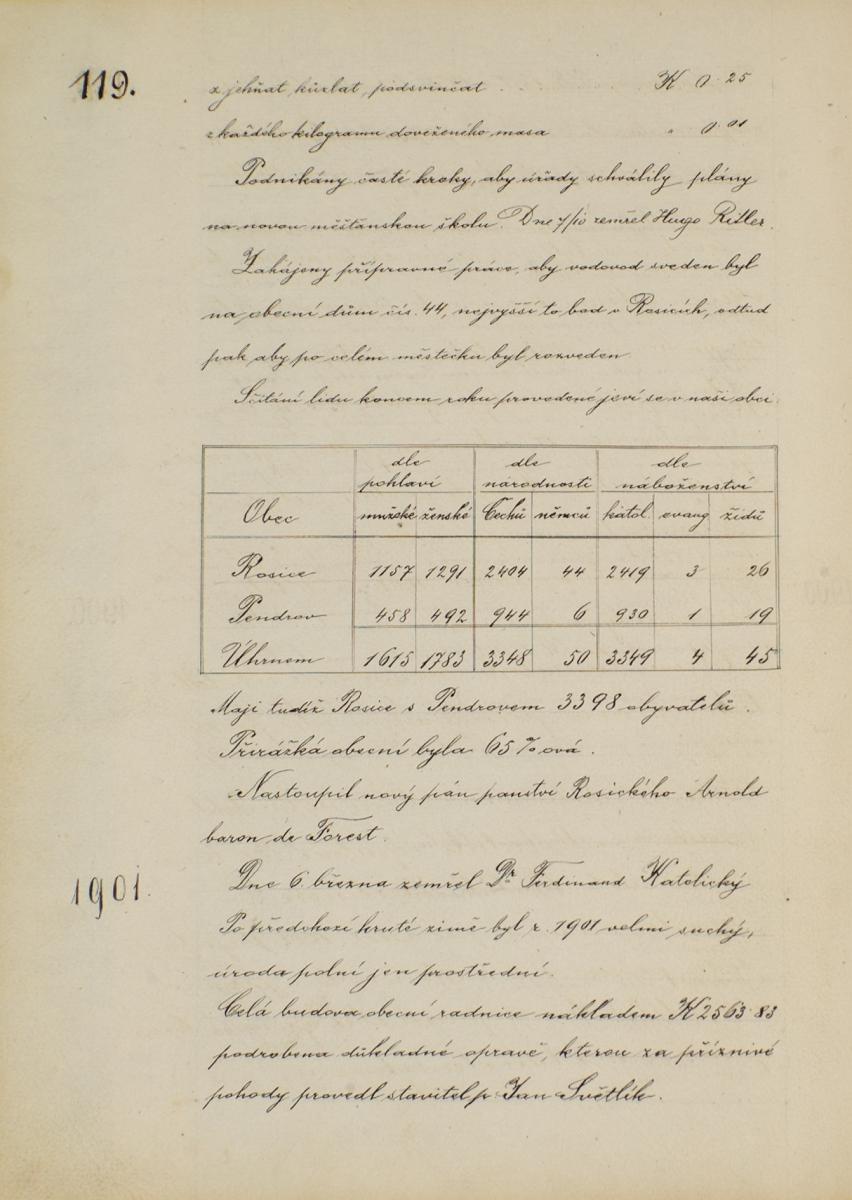 119.
z jehňat, kůzlat, podsvinčat . . . . K 0.25
z každého kilogramu dovezeného masa " 0.01
Podnikány časté kroky, aby úřady schválily plány
na novou měšťanskou školu. Dne 7/10 zemřel Hugo Ritler.
Zahájeny přípravné práce, aby vodovod sveden byl
na obecní dům čís. 44, nejvyšší to bod v Rosicích, odtud
pak aby po celém městečku byl rozveden.
Sčítání lidu koncem roku provedené jeví se v naši obci.
dle dle dle
pohlaví národnosti náboženství
Obec mužské ženské Čechů němců kátol. evang židů
Rosice 1157 1291 2404 44 2419 3 26
Pendrov 458 492 944 6 930 1 19
Úhrnem 1615 1783 3348 50 3349 4 45
Mají tudíž Rosice s Pendrovem 3398 obyvatelů.
Přirážka obecní byla 65% ová.
Nastoupil nový pán panství Rosického Arnold
baron de Forest.
1901.
Dne 6. března zemřel Dr Ferdinand Katolický
Po předchozí kruté zimě byl r. 1901 velmi suchý,
úroda polní jen prostřední.
Celá budova obecní radnice nákladem K 2563.83
podrobena důkladné opravě, kterou za příznivé
pohody provedl stavitel p. Jan Světlík.